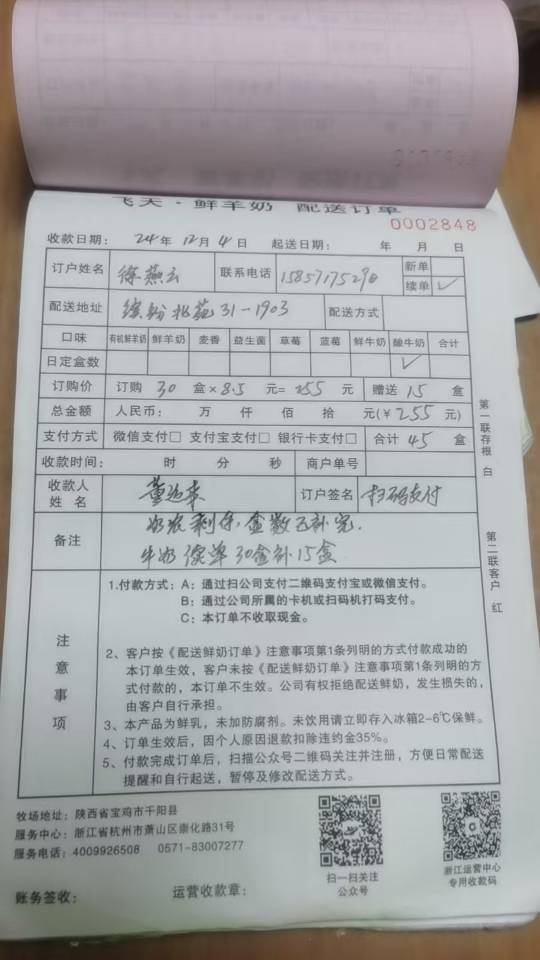 飞天·鲜羊奶 配送订单
0002848
收款日期: 24年12月4日 起送日期: 年 月 日
订户姓名 徐燕云 联系电话 15857175290 新单
续单 ✓
配送地址 缤纷北苑31-1903 配送方式
口味 有机鲜羊奶 鲜羊奶 麦香 益生菌 草莓 蓝莓 鲜牛奶 酸牛奶 合计
日定盒数 ✓
订购价 订购 30 盒×8.5 元=255 元 赠送 15 盒
总金额 人民币: 万 仟 佰 拾 元(¥255元)
支付方式 微信支付□ 支付宝支付□ 银行卡支付□ 合计 45 盒
收款时间: 时 分 秒 商户单号
收款人姓名 董 订户签名 扫码支付
第一联存根 白
第二联客户 红
备注 剩余,盒数已补完.
牛奶续单30盒补15盒
注意事项
1.付款方式:A:通过扫公司支付二维码支付宝或微信支付。
B:通过公司所属的卡机或扫码机打码支付。
C:本订单不收取现金。
2、客户按《配送鲜奶订单》注意事项第1条列明的方式付款成功的
本订单生效,客户未按《配送鲜奶订单》注意事项第1条列明的方
式付款的,本订单不生效。公司有权拒绝配送鲜奶,发生损失的,
由客户自行承担。
3、本产品为鲜乳,未加防腐剂。未饮用请立即存入冰箱2-6℃保鲜。
4、订单生效后,因个人原因退款扣除违约金35%。
5、付款完成订单后,扫描公众号二维码关注并注册,方便日常配送
提醒和自行起送,暂停及修改配送方式。
牧场地址:陕西省宝鸡市千阳县
服务中心:浙江省杭州市萧山区崇化路31号
服务电话:4009926508 0571-83007277
扫一扫关注
公众号
浙江运营中心
专用收款码
账务签收: 运营收款章: